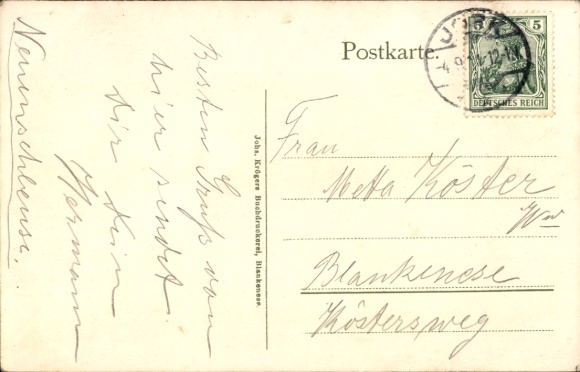 Neuenschleuse.
Besten Gruß von
hier sendet
Dir Dein
Hermann
Johs. Krögers Buchdruckerei, Blankenese.
Postkarte.
JORK
5 5
DEUTSCHES REICH
Frau
Metta Köster
Ww
Blankenese
Köstersweg